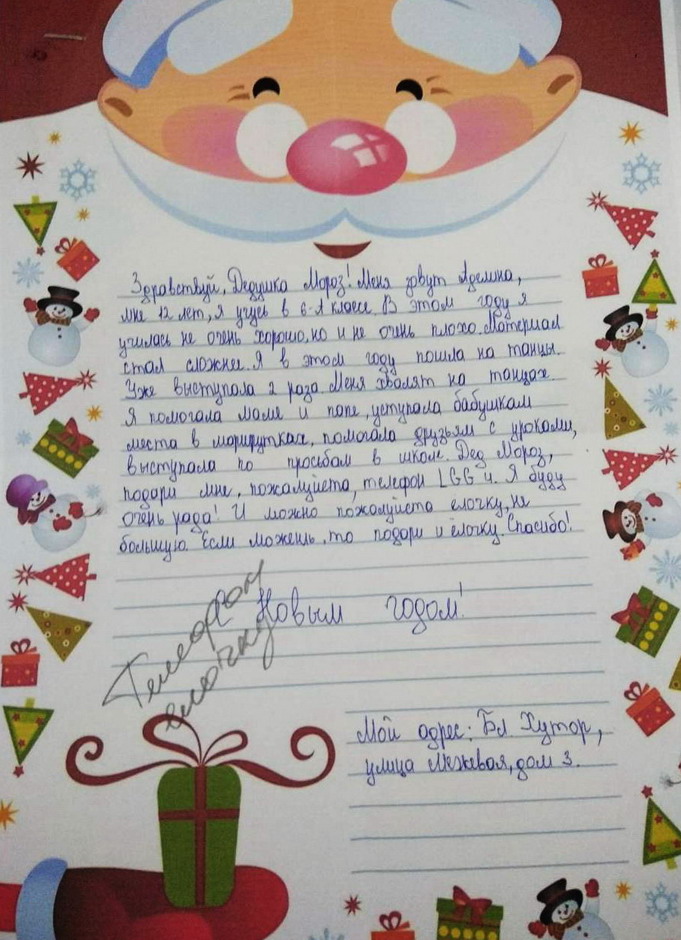 Здравствуй, Дедушка Мороз! Меня зовут Аделина,
мне 12 лет, я учусь в 6-А классе. В этом году я
училась не очень хорошо, но и не очень плохо. Материал
стал сложнее. Я в этом году пошла на танцы.
Уже выступала 2 раза. Меня хвалят на танцах.
Я помогала маме и папе, уступала бабушкам
места в маршрутках, помогала друзьям с уроками,
выступала по просьбам в школе. Дед Мороз,
подари мне, пожалуйста, телефон LGG 4. Я буду
очень рада! И можно пожалуйста ёлочку, не
большую. Если можешь, то подари и ёлочку. Спасибо!
С Новым годом!
Телефон
елочку
Мой адрес: Бл Хутор,
улица Межевая, дом 3.